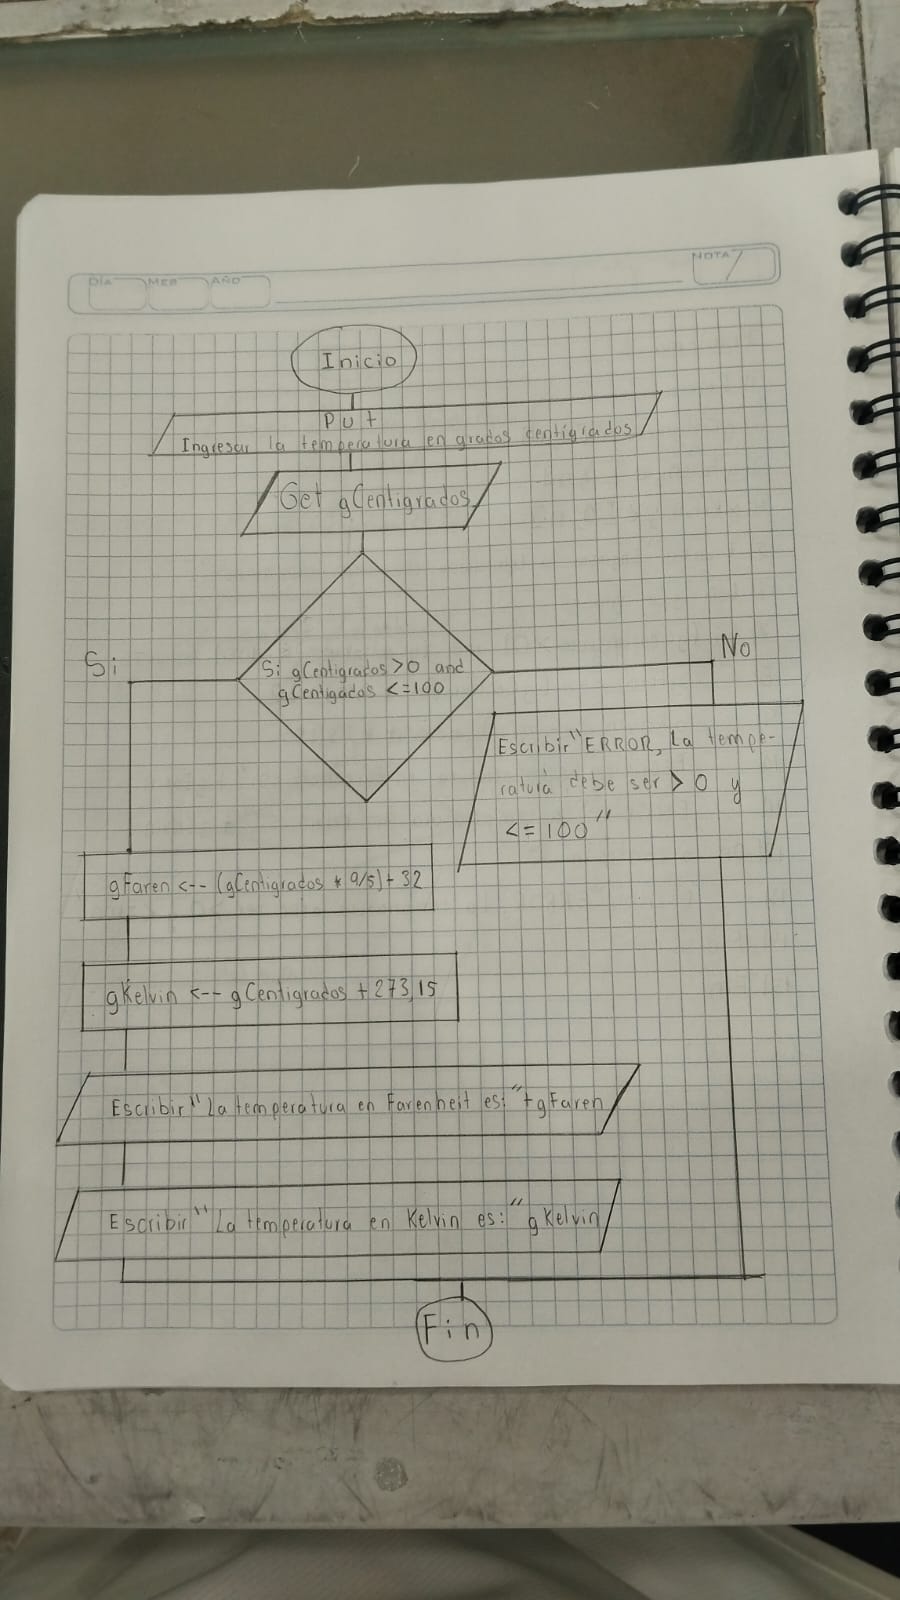 DÍA MER AÑO
NOTA
Inicio
Put
Ingresar la temperatura en grados centigrados
Get gCentigrados
Si
No
Si gCentigrados >0 and
gCentigados <=100
Escribir "ERROR, La tempe-
ratura debe ser > 0 y
<= 100"
gFaren <-- (gCentigrados * 9/5) + 32
gKelvin <-- gCentigrados + 273,15
Escribir "La temperatura en Farenheit es:" + gFaren
Escribir "La temperatura en Kelvin es:" gKelvin
Fin